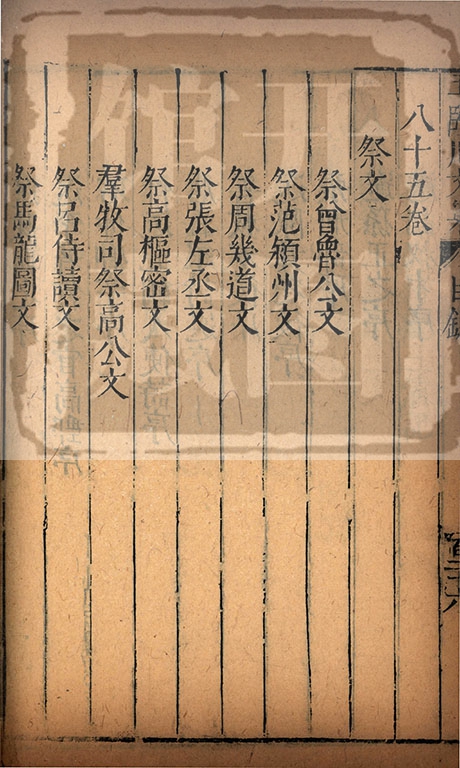 八十五卷
祭文
祭曾魯公文
祭范潁州文
祭周幾道文
祭張左丞文
祭高樞密文
羣牧司祭高公文
祭呂侍讀文
祭馬龍圖文